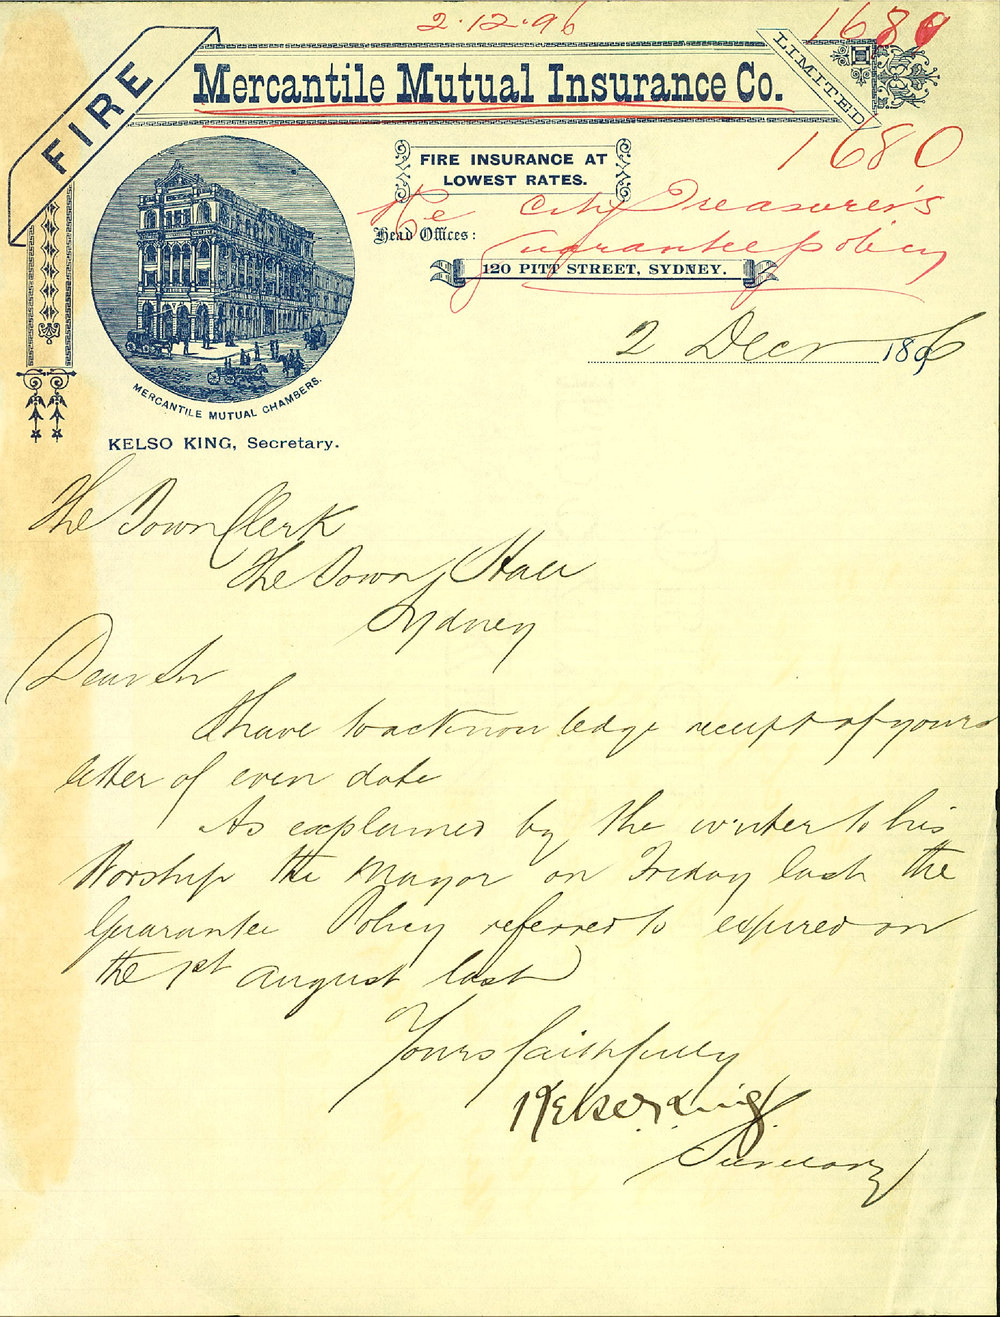 2.12.96
1680
FIRE
Mercantile Mutual Insurance Co.
LIMITED
1680
FIRE INSURANCE AT
LOWEST RATES.
Re City Treasurer's
Guarantee policy
Head Offices:
120 PITT STREET, SYDNEY.
2 Decr 1896
MERCANTILE MUTUAL CHAMBERS.
KELSO KING, Secretary.
The Town Clerk
The Town Hall
Sydney
Dear Sir
I have to acknowledge receipt of yours
letter of even date
As explained by the writer to his
Worship the Mayor on Friday last the
Guarantee Policy referred to expired on
the 1st August last
Yours faithfully
Kelso King
Secretary